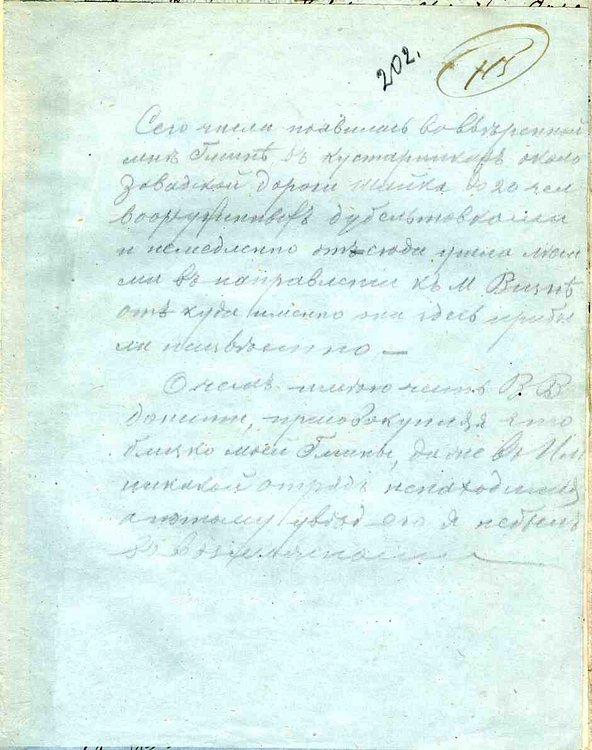 202.
115
Сего числа появилась во ввѣренной
мнѣ Гминѣ въ кустарникахъ около
Завадской дороги шайка до 20 чел
вооруженныхъ дубельтовками
и немедленно отъ сюда ушла
въ направленіи къ М Визнѣ
отъ куда именно она здесь прибы
ла неизвѣстно —
О чемъ имѣю честь В В
донести, присовокупляя что
близко моей Гмины, даже въ
никакой отрядъ ненаходится
а потому я небылъ
въ